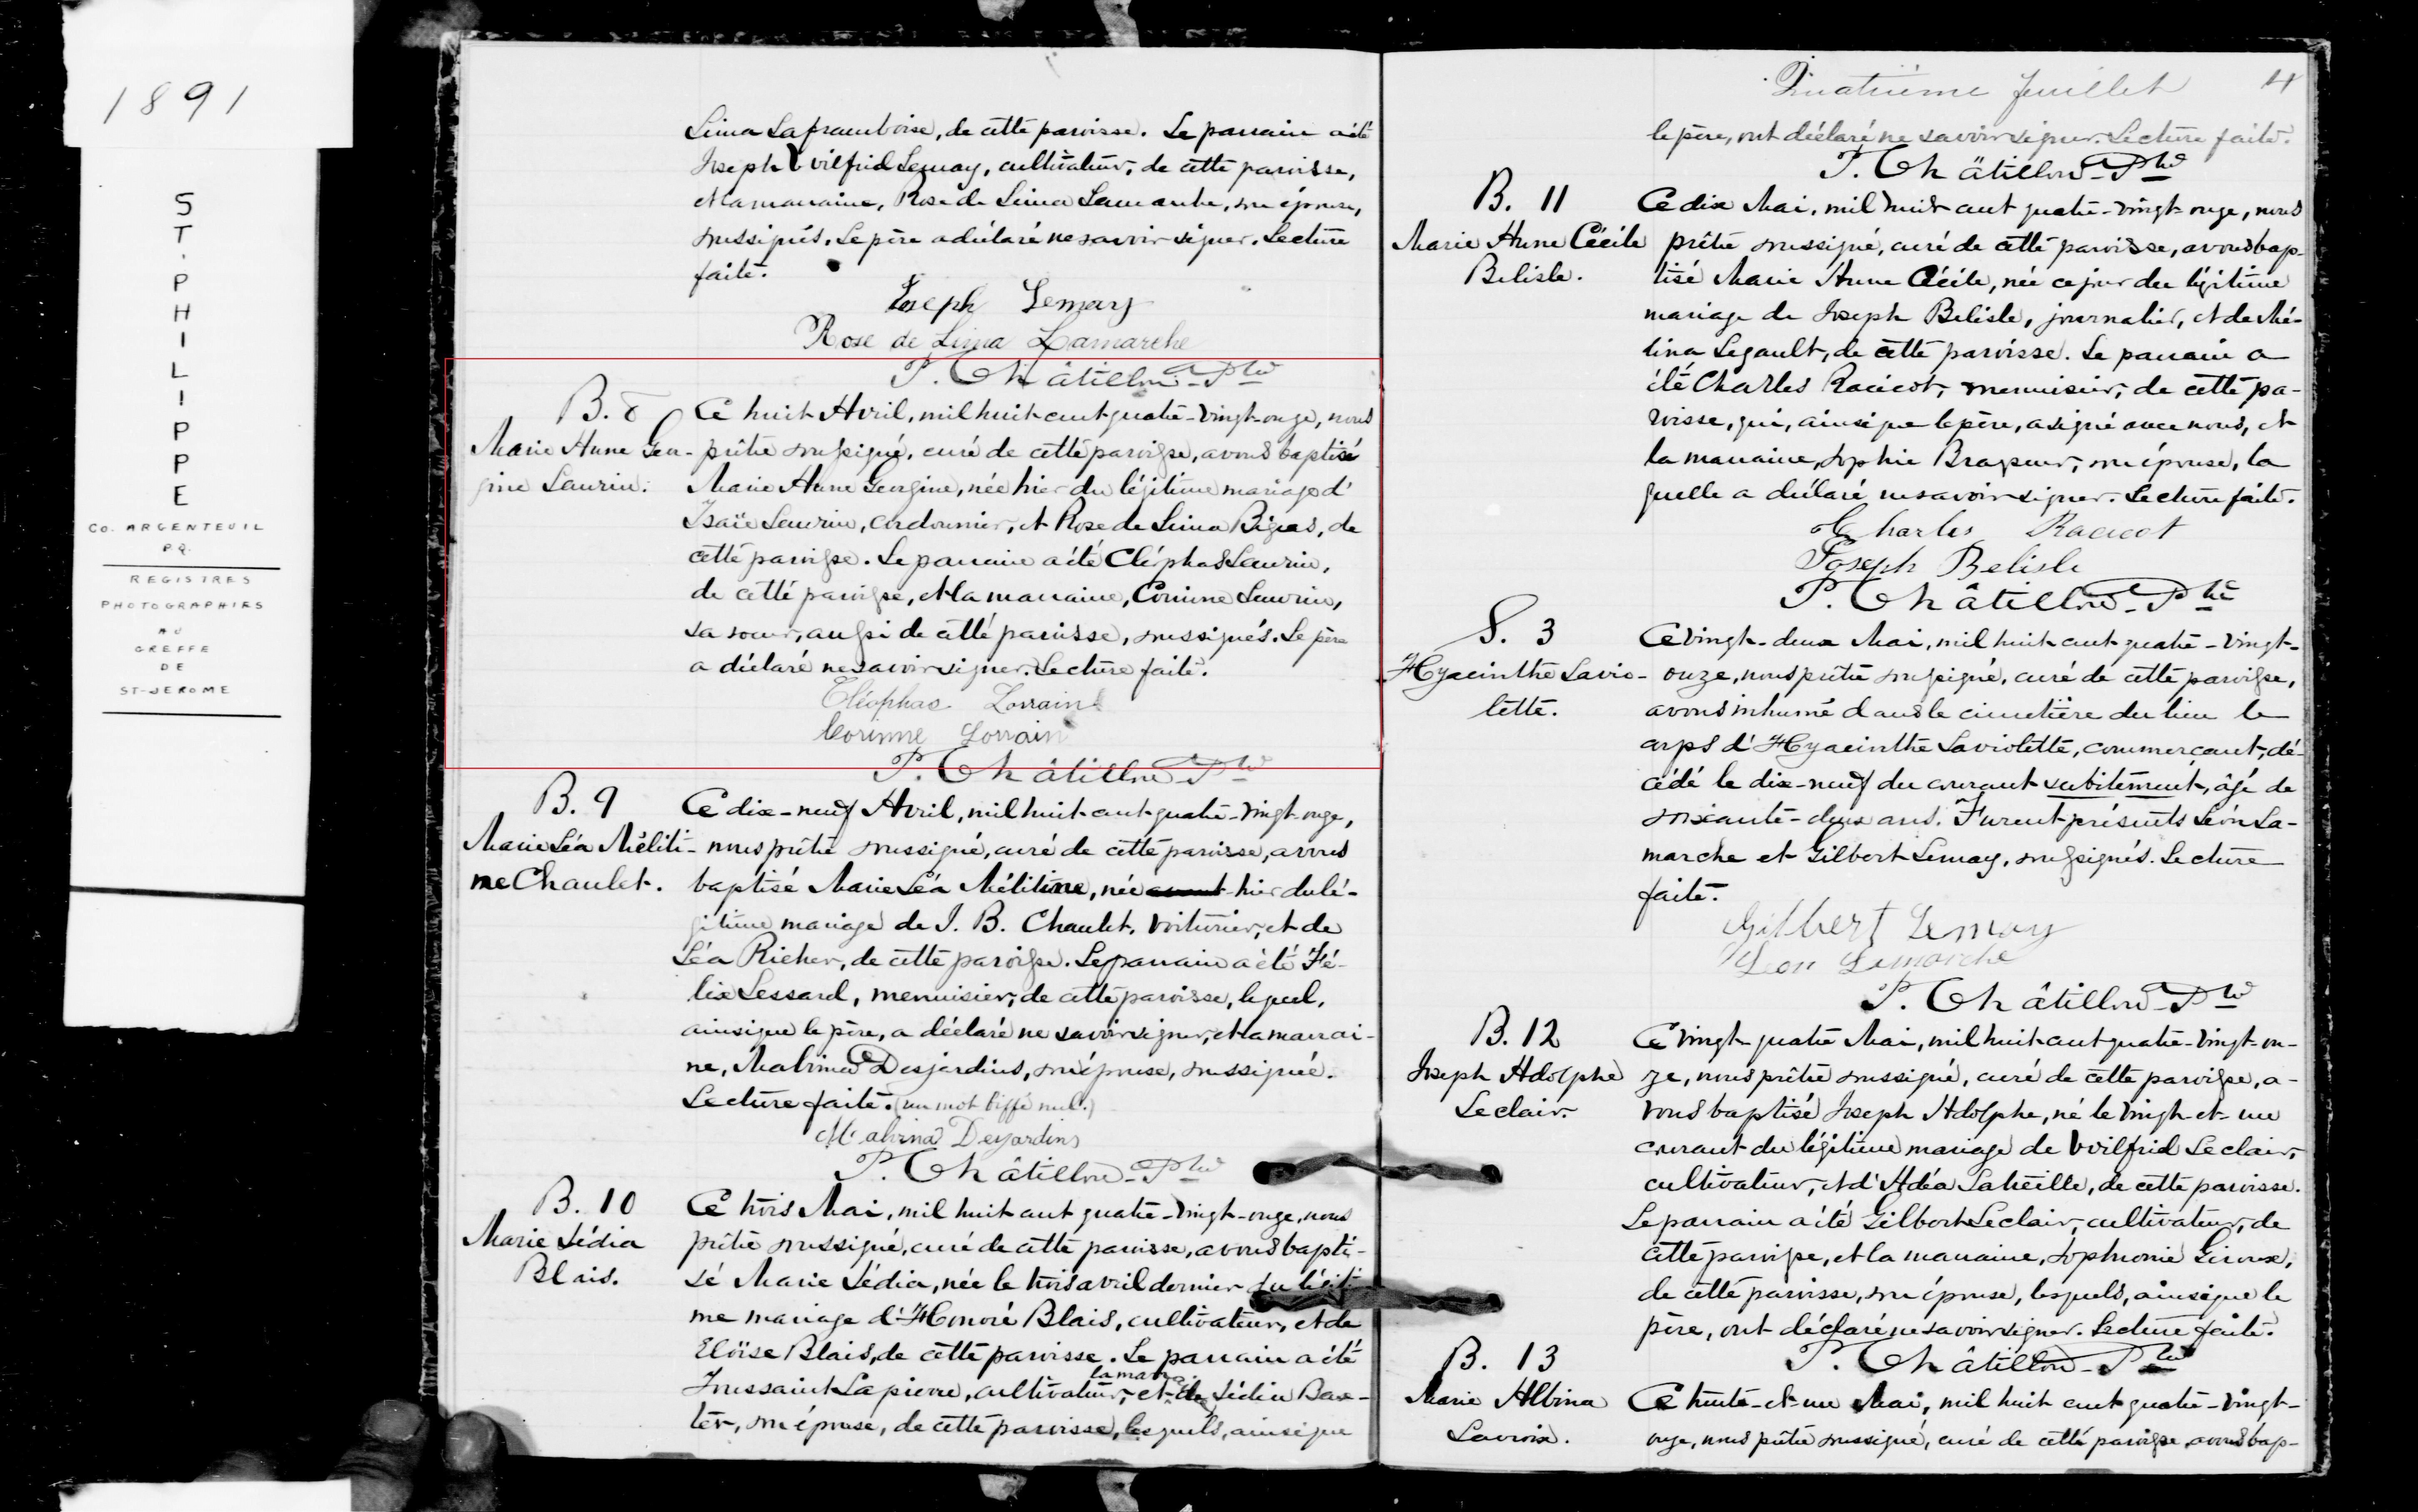 1891
ST. PHILIPPE
CO. ARGENTEUIL
P.Q.
REGISTRES
PHOTOGRAPHIES
AU
GREFFE
DE
ST-JEROME
Lima Laframboise, de cette paroisse. Le parrain a été
Joseph Wilfrid Lemay, cultivateur, de cette paroisse,
et la marraine, Rose de Lima Lamarche, son épouse,
soussignés. Le père a déclaré ne savoir signer. Lecture
faite.
Joseph Lemay
Rose de Lima Lamarche
P. Châtillon Ptre
B. 8
Marie Anne Geor-
gine Laurin.
Ce huit Avril, mil huit cent quatre-vingt-onze, nous
prêtre soussigné, curé de cette paroisse, avons baptisé
Marie Anne Georgine, née hier du légitime mariage d'
Isaïe Laurin, cordonnier, et Rose de Lima Bigras, de
cette paroisse. Le parrain a été Cléophas Laurin,
de cette paroisse, et la marraine, Corinne Laurin,
sa soeur, aussi de cette paroisse, soussignés. Le père
a déclaré ne savoir signer. Lecture faite.
Cléophas Lorrain
Corinne Lorrain
P. Châtillon Ptre
B. 9
Marie Léa Méliti-
me Chaulet.
Ce dix-neuf Avril, mil huit cent quatre-vingt-onze,
nous prêtre soussigné, curé de cette paroisse, avons
baptisé Marie Léa Mélitine, née avant hier du lé-
gitime mariage de J. B. Chaulet, voiturier, et de
Léa Richer, de cette paroisse. Le parrain a été Fé-
lix Lessard, menuisier, de cette paroisse, lequel,
ainsi que le père, a déclaré ne savoir signer, et la marrai-
ne, Malvina Desjardins, son épouse, soussignée.
Lecture faite. (un mot biffé nul.)
Malvina Desjardins
P. Châtillon Ptre
B. 10
Marie Lédia
Blais.
Ce trois Mai, mil huit cent quatre-vingt-onze, nous
prêtre soussigné, curé de cette paroisse, avons bapti-
sé Marie Lédia, née le trois avril dernier du légiti
me mariage d'Honoré Blais, cultivateur, et de
Eloïse Blais, de cette paroisse. Le parrain a été
Toussaint Lapierre, cultivateur, et de Lédia Bax-
ter, son épouse, de cette paroisse, lesquels, ainsi que
Quatrième feuillet 4
le père, ont déclaré ne savoir signer. Lecture faite.
P. Châtillon Ptre
B. 11
Marie Anne Cécile
Belisle.
Ce dix Mai, mil huit cent quatre-vingt-onze, nous
prêtre soussigné, curé de cette paroisse, avons bap-
tisé Marie Anne Cécile, née ce jour du légitime
mariage de Joseph Belisle, journalier, et de Mé-
lina Legault, de cette paroisse. Le parrain a
été Charles Racicot, menuisier, de cette pa-
roisse, qui, ainsi que le père, a signé avec nous, et
la marraine, Sophie Brasseur, son épouse, la
quelle a déclaré ne savoir signer. Lecture faite.
Charles Racicot
Joseph Belisle
P. Châtillon Ptre
S. 3
Hyacinthe Lavio-
lette.
Ce vingt-deux Mai, mil huit cent quatre-vingt-
onze, nous prêtre soussigné, curé de cette paroisse,
avons inhumé dans le cimetière du lieu le
corps d'Hyacinthe Laviolette, commerçant, dé-
cédé le dix-neuf du courant subitement, âgé de
soixante-deux ans. Furent présents Léon La-
marche et Gilbert Lemay, soussignés. Lecture
faite.
Gilbert Lemay
Leon Lamarche
P. Châtillon Ptre
B. 12
Joseph Adolphe
Leclair.
Ce vingt quatre Mai, mil huit cent quatre-vingt-on-
ze, nous prêtre soussigné, curé de cette paroisse, a-
vons baptisé Joseph Adolphe, né le vingt-et-un
courant du légitime mariage de Wilfrid Leclair,
cultivateur, et d'Adéa Latreille, de cette paroisse.
Le parrain a été Gilbert Leclair, cultivateur, de
cette paroisse, et la marraine, Sophronie Giroux,
de cette paroisse, son épouse, lesquels, ainsi que le
père, ont déclaré ne savoir signer. Lecture faite.
P. Châtillon Ptre
B. 13
Marie Albina
Lacroix.
Ce trente-et-un Mai, mil huit cent quatre-vingt-
onze, nous prêtre soussigné, curé de cette paroisse, avons bap-